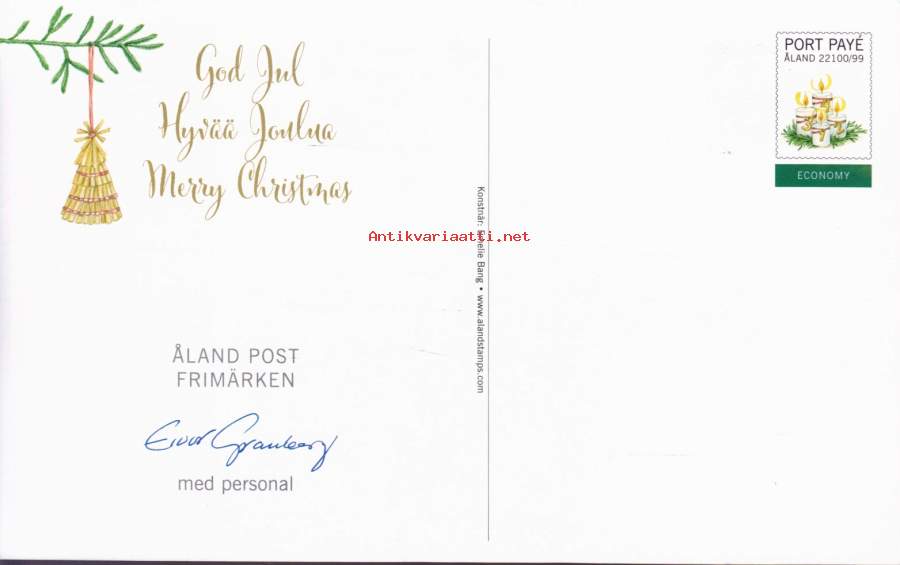 God Jul
Hyvää Joulua
Merry Christmas
PORT PAYÉ
ÅLAND 22100/99
ECONOMY
Antikvariaatti.net
Konstnär: Bang • www.alandstamps.com
ÅLAND POST
FRIMÄRKEN
Granberg
med personal